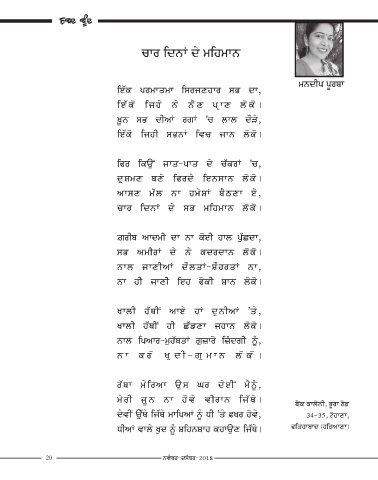 ਚਾਰ ਦਿਨਾਂ ਦੇ ਮਹਿਮਾਨ
ਮਨਦੀਪ ਪੂਰਬਾ
ਇੱਕ ਪਰਮਾਤਮਾ ਸਿਰਜਣਹਾਰ ਸਭ ਦਾ,
ਇੱਕੋ ਜਿਹੇ ਨੇ ਨੈਣ ਪ੍ਰਾਣ ਲੋਕੋ।
ਖ਼ੂਨ ਸਭ ਦੀਆਂ ਰਗਾਂ 'ਚ ਲਾਲ ਦੌੜੇ,
ਇੱਕੋ ਜਿਹੀ ਸਭਨਾਂ ਵਿਚ ਜਾਨ ਲੋਕੋ।
ਫਿਰ ਕਿਉਂ ਜਾਤ-ਪਾਤ ਦੇ ਚੱਕਰਾਂ 'ਚ,
ਦੁਸ਼ਮਣ ਬਣੇ ਫਿਰਦੇ ਇਨਸਾਨ ਲੋਕੋ।
ਆਸਣ ਮੱਲ ਨਾ ਹਮੇਸ਼ਾਂ ਬੈਠਣਾ ਏ,
ਚਾਰ ਦਿਨਾਂ ਦੇ ਸਭ ਮਹਿਮਾਨ ਲੋਕੋ।
ਗ਼ਰੀਬ ਆਦਮੀ ਦਾ ਨਾ ਕੋਈ ਹਾਲ ਪੁੱਛਦਾ,
ਸਭ ਅਮੀਰਾਂ ਦੇ ਨੇ ਕਦਰਦਾਨ ਲੋਕੋ।
ਨਾਲ ਜਾਣੀਆਂ ਦੌਲਤਾਂ-ਸ਼ੋਹਰਤਾਂ ਨਾ,
ਨਾ ਹੀ ਜਾਣੀ ਇਹ ਫੋਕੀ ਸ਼ਾਨ ਲੋਕੋ।
ਖਾਲੀ ਹੱਥੀਂ ਆਏ ਹਾਂ ਦੁਨੀਆਂ 'ਤੇ,
ਖਾਲੀ ਹੱਥੀਂ ਹੀ ਛੱਡਣਾ ਜਹਾਨ ਲੋਕੋ।
ਨਾਲ ਪਿਆਰ-ਮੁਹੱਬਤਾਂ ਗੁਜ਼ਾਰੋ ਜ਼ਿੰਦਗੀ ਨੂੰ,
ਨਾ ਕਰੋ ਖ਼ੁਦੀ-ਗੁਮਾਨ ਲੋਕੋ।
ਰੱਬਾ ਮੇਰਿਆ ਉਸ ਘਰ ਦੇਈਂ ਮੈਨੂੰ,
ਮੇਰੀ ਜੂਨ ਨਾ ਹੋਵੇ ਵੀਰਾਨ ਜਿੱਥੇ।
ਦੇਵੀਂ ਉੱਥੇ ਜਿੱਥੇ ਮਾਪਿਆਂ ਨੂੰ ਧੀ 'ਤੇ ਫਖਰ ਹੋਵੇ,
ਧੀਆਂ ਵਾਲੇ ਖੁਦ ਨੂੰ ਸ਼ਹਿਨਸ਼ਾਹ ਕਹਾਉਣ ਜਿੱਥੇ।
ਬੈਂਕ ਕਾਲੋਨੀ, ਭੂਰਾ ਰੋਡ
34-35, ਟੋਹਾਣਾ,
ਫਤਿਹਾਬਾਦ (ਹਰਿਆਣਾ)
20
ਨਵੰਬਰ-ਦਸੰਬਰ-2018